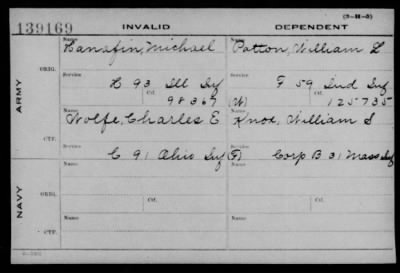 (3-11-3)
139169 INVALID DEPENDENT
Name Name
Hanafin, Michael Patton, William L
ORIG.
Service Service
H 93 Ill Inf F 59 Ind Inf
Ctf. Ctf.
98367 (W) 125735
ARMY
Name Name
Wolfe, Charles E Knox, William S
CTF.
Service Service
C 91 Ohio Inf (F) Corp B 31 Mass Inf
Name Name
ORIG.
Service Service
NAVY
Name Name
CTF.